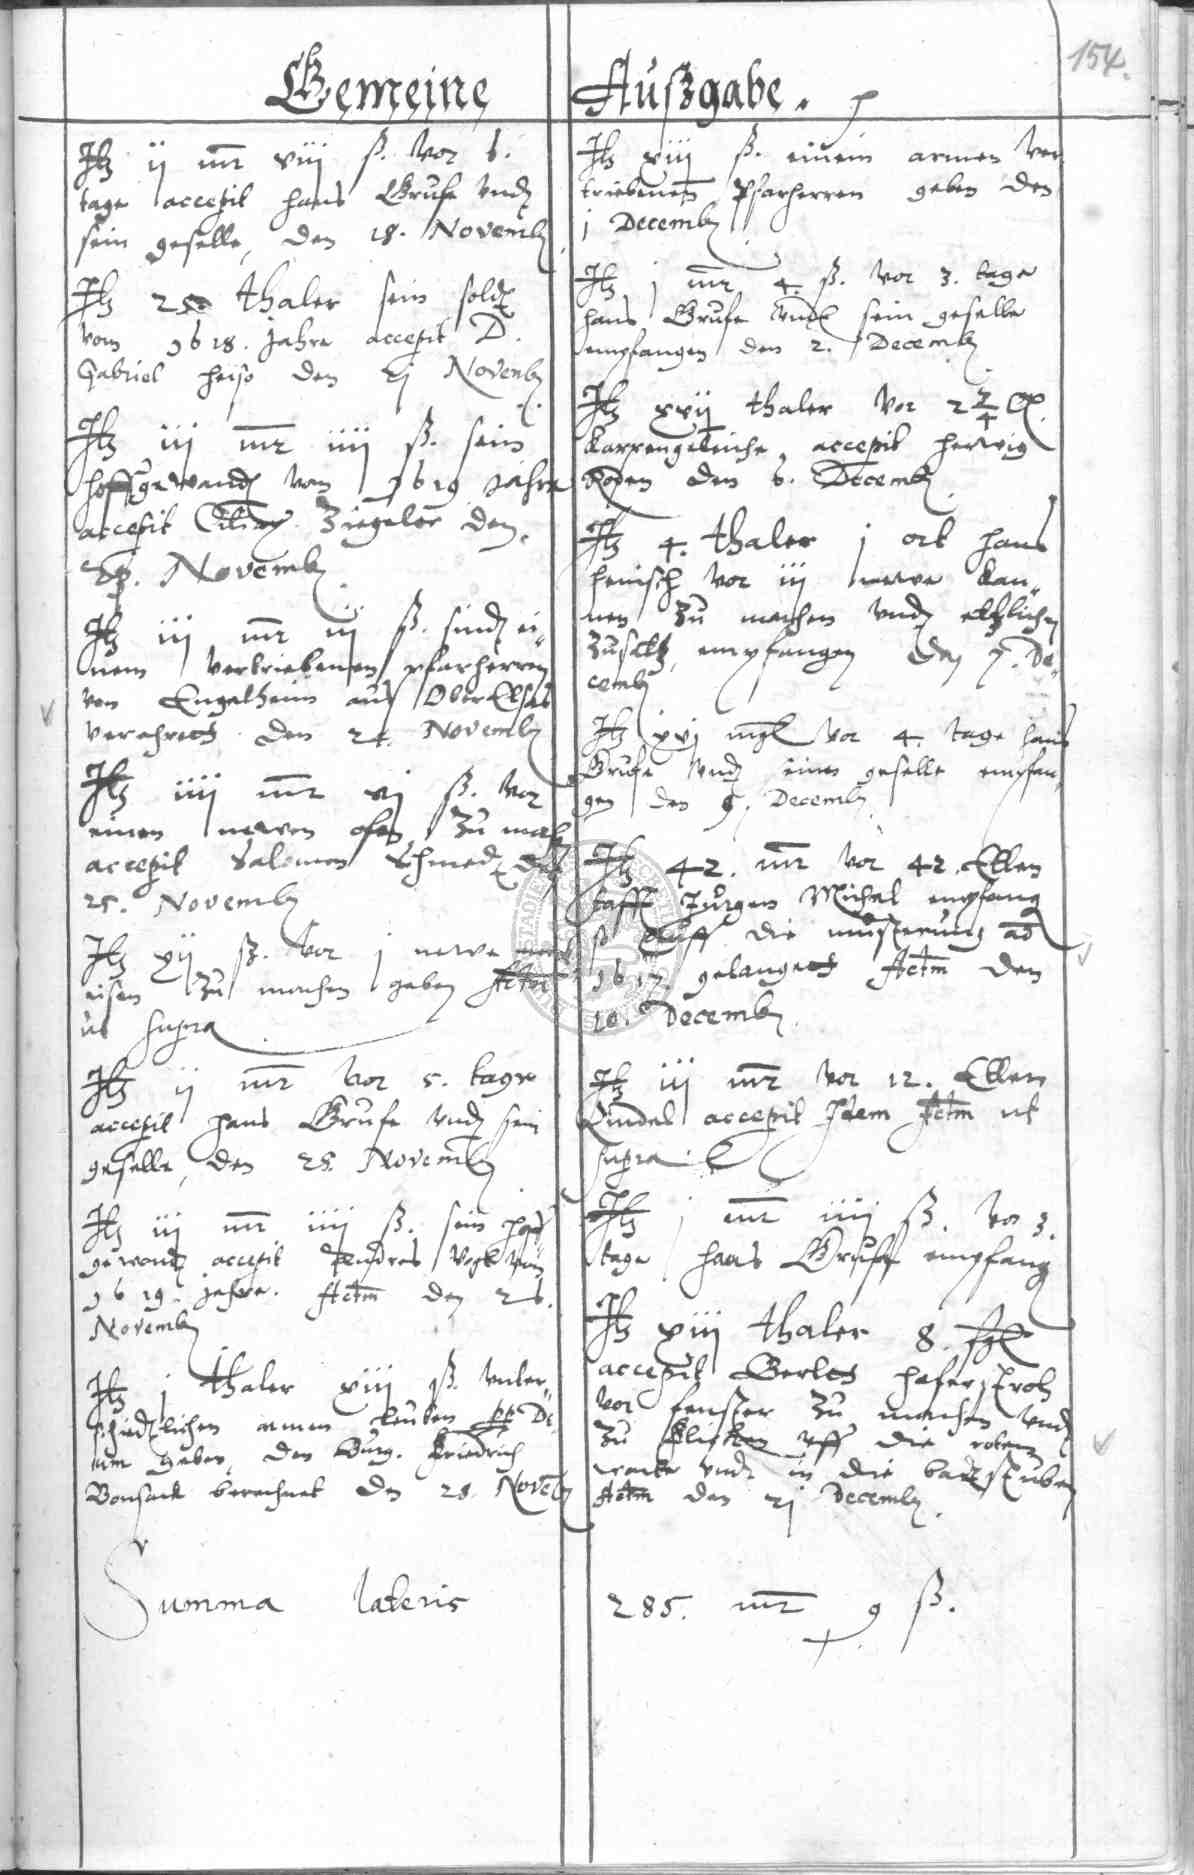 154.
Gemeine Außgabe.
Itz ij mr xviij ß. vor 6.
tage accepit hans Grufe vnd
sein geselle, den 18. Novemb
Itz 25 thaler sein sold
vom 1618. Jahre accepit D.
Gabriel heise den 21 Novemb
Itz iij mr iiij ß. sein
hoffgewand vom 1619 jahre
accepit Ziegeler den
23. Novemb
Itz iij mr iij ß. sind ei-
nem vertriebenen pfarherren
von Engelheim aus OberElsas
verehrett den 24. Novemb
Itz iiij mr vj ß. vor
einen newen ofen zu mach
accepit Salomon Schmed den
25. Novemb
Itz xij ß. vor j newe
eisen zu machen geben Actm
ut supra
Itz ij mr vor 5. tage
accepit hans Grufe vnd sein
geselle, den 25. Novemb
Itz iij mr iiij ß. sein hoff
gewand accepit Andres Vogt vom
1619. jahre. Actm den 26.
Novemb
Itz j thaler xiij ß. vnter-
schiedlichen armen leuten
geben, den Burg. Friedrich
Bonsack berechnet den 28. Novemb
Summa lateris
Itz xiij ß. einem armen ver
triebenen Pfarherren geben den
j Decemb
Itz j mr 4. ß. vor 3. tage
hans Grufe vnd sein geselle
empfangen den 2. Decemb
Itz xxij thaler vor 2
karpen accepit herwig
Roden den 6. Decemb
Itz 4. thaler j ort hans
henisch vor iij newe kan-
nen zu machen vnd etzlichen
zusatz, empfangen den 7. De-
cemb
Itz xvj vor 4. tage hans
Grufe vnd einen geselle empfan
gen den 9. Decemb
Itz 42. mr vor 42. Ellen
tafft Jurgen Michel empfang
so vff die musterung ao
1617. gelangett Actm den
10. Decemb
Itz iij mr vor 12. Ellen
Zindel accepit Idem Actm ut
supra
Itz j mr iiij ß. vor 3.
tage hans Gruff empfang
Itz xiij thaler 8.
accepit Berlet haferstroh
vor fenster zu machen vnd
zu flicken vff die roten
warte vnd in die badstuben
Actm den 21 Decemb
285. mr 9 ß.